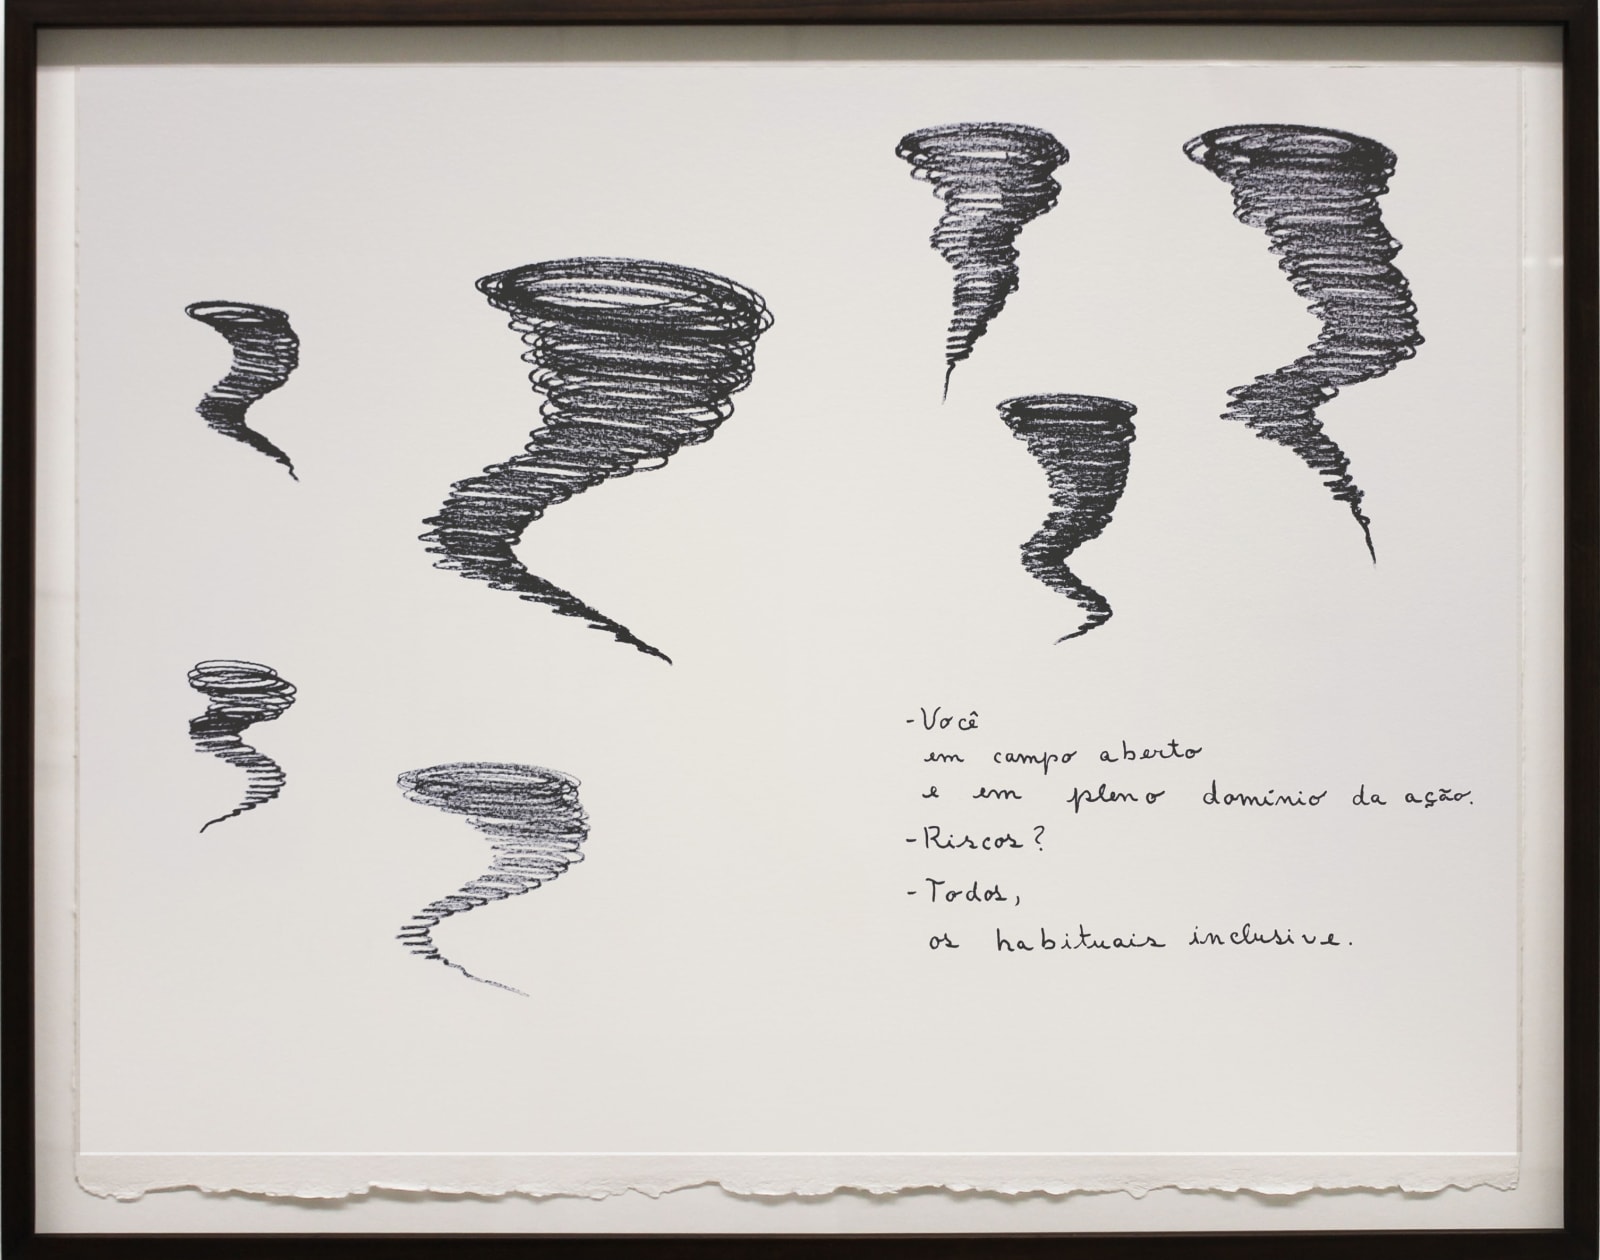 -Você
em campo aberto
e em pleno domínio da ação.
-Riscos?
-Todos,
os habituais inclusive.